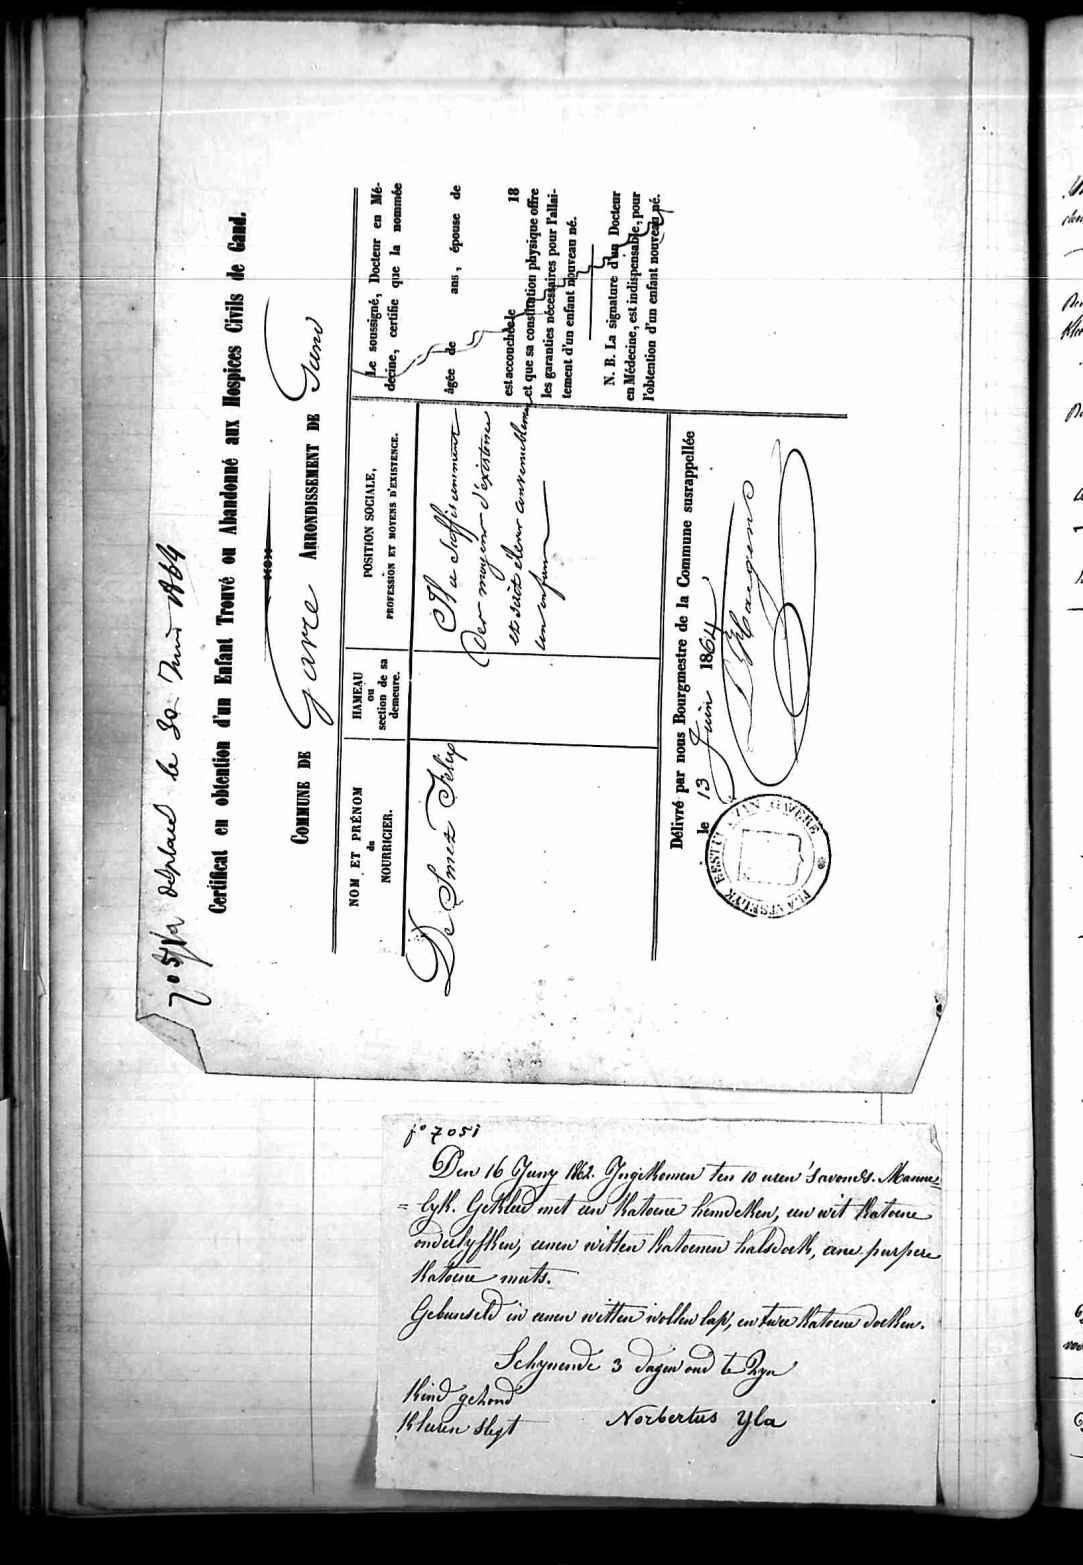 7051/2 déplacé le 30 Juin 1864
Certificat en obtention d'un Enfant Trouvé ou Abandonné aux Hospices Civils de Gand.
COMMUNE DE Gavre ARRONDISSEMENT DE Gand
NOM ET PRÉNOM
du
NOURRICIER.
HAMEAU
ou
section de sa
demeure.
POSITION SOCIALE,
PROFESSION ET MOYENS D'EXISTENCE.
De Smet Felix
Il a suffisamment
des moyens d'existence
et sait élever convenablement
un enfant
Le soussigné, Docteur en Mé-
decine, certifie que la nommée
âgée de ans, épouse de
est accouchée le 18
et que sa constitution physique offre
les garanties nécessaires pour l'allai-
tement d'un enfant nouveau né.
N. B. La signature d'un Docteur
en Médecine, est indispensable, pour
l'obtention d'un enfant nouveau né.
Délivré par nous Bourgmestre de la Commune susrappellée
le 13 Juin 1864,
PLAETSELYK BESTUUR VAN GAVERE
fo 7051
Den 16 Juny 1862. Ingekomen ten 10 uren 'savonds. Manne=
=lyk. Gekleed met een katoene hemdeken, een wit katoene
onderlyfken, eenen witten katoenen halsdoek, eene purpere
katoene muts.
Gebunseld in eenen witten wollen lap, en twee katoene doeken.
Schynende 3 dagen oud te zyn
Kind gezond
Kleeren slegt Norbertus Yla